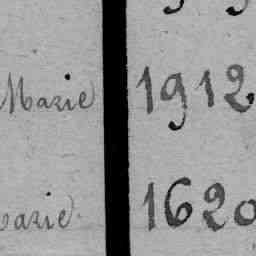 Marie 1912
Marie 1620